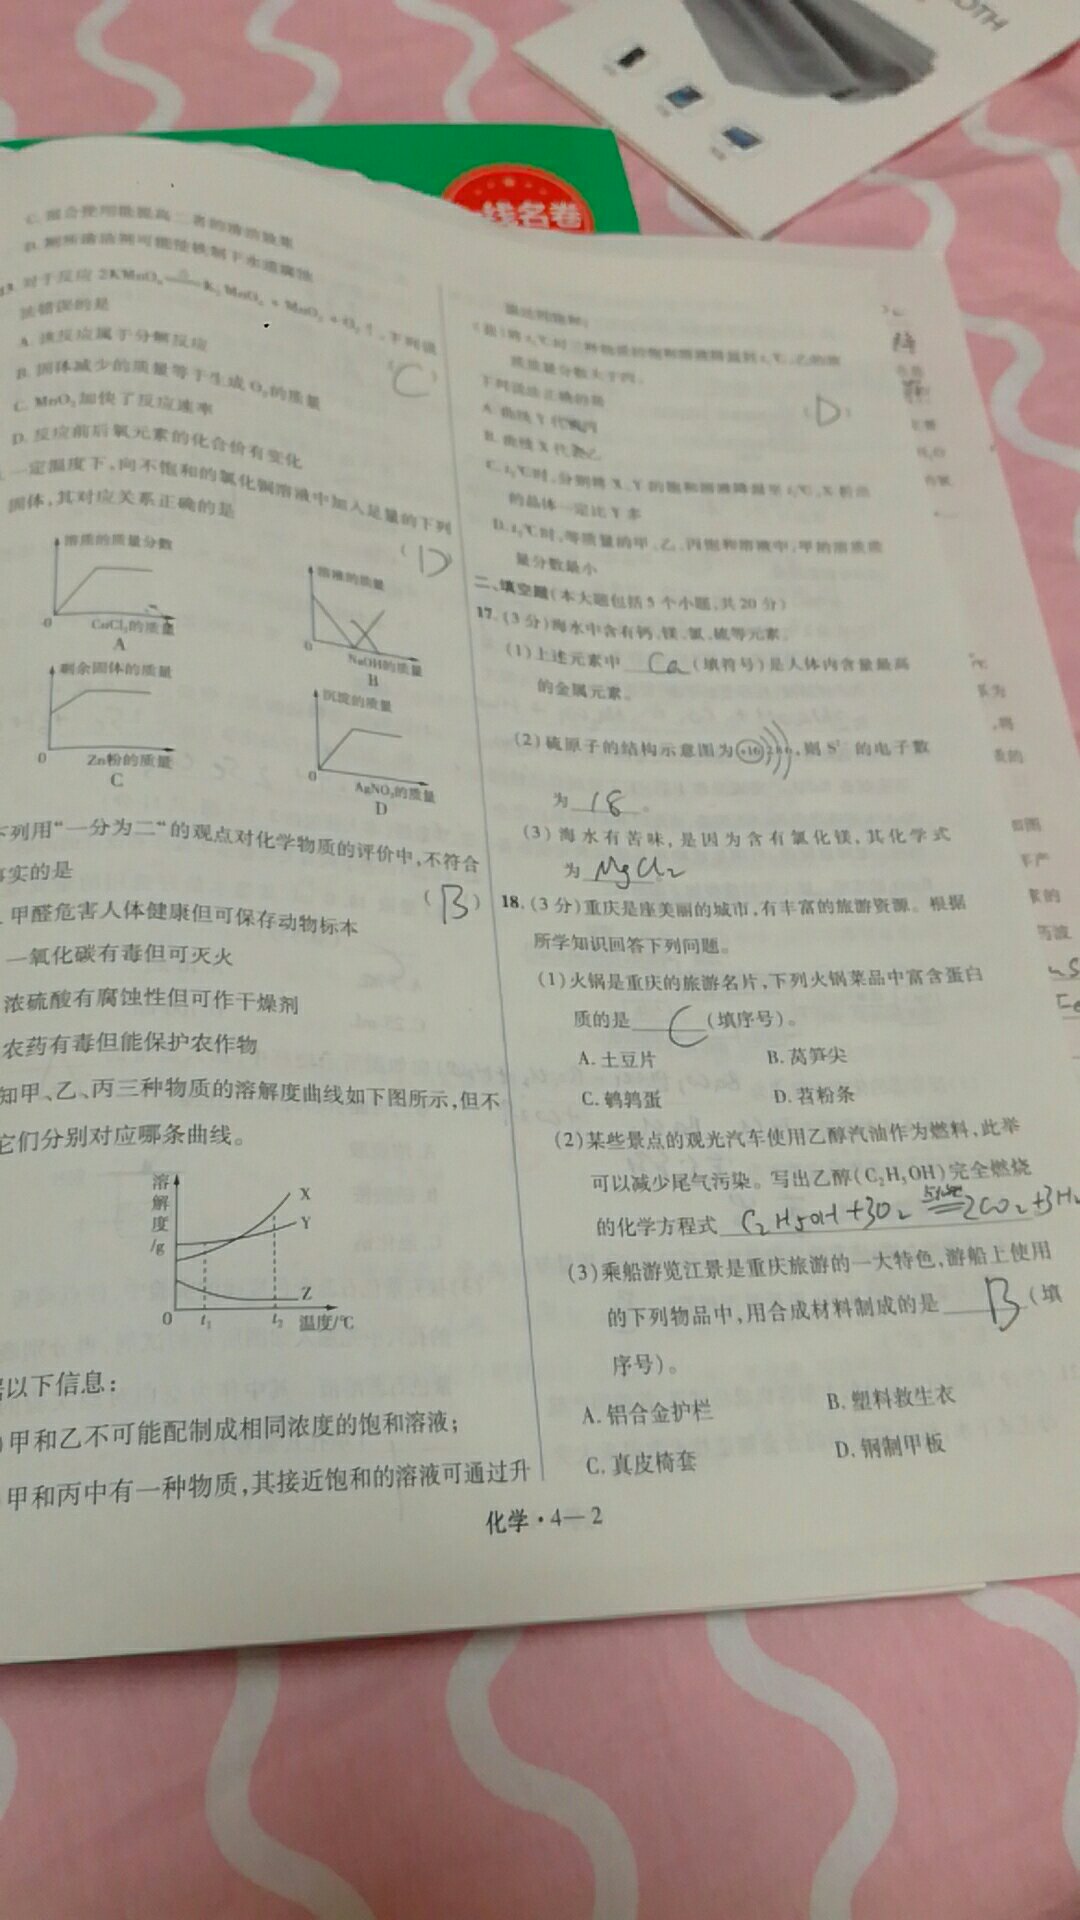 OTH
一线名卷
C. 混合使用能提高二者的清洁效果
D. 厕所清洁剂可能使铁制下水道腐蚀
13. 对于反应 2KMnO₄ ══ K₂MnO₄ + MnO₂ + O₂↑, 下列说
法错误的是
(C)
A. 该反应属于分解反应
B. 固体减少的质量等于生成 O₂的质量
C. MnO₂加快了反应速率
D. 反应前后氧元素的化合价有变化
一定温度下,向不饱和的氯化铜溶液中加入足量的下列
固体,其对应关系正确的是
(D)
溶质的质量分数
0
CuCl₂的质量
A
溶液的质量
0
NaOH的质量
B
剩余固体的质量
0
Zn粉的质量
C
沉淀的质量
0
AgNO₃的质量
D
下列用“一分为二”的观点对化学物质的评价中,不符合
事实的是
(B)
甲醛危害人体健康但可保存动物标本
一氧化碳有毒但可灭火
浓硫酸有腐蚀性但可作干燥剂
农药有毒但能保护农作物
知甲、乙、丙三种物质的溶解度曲线如下图所示,但不
它们分别对应哪条曲线。
溶解度/g
X
Y
Z
0
t₁
t₂
温度/℃
以下信息:
甲和乙不可能配制成相同浓度的饱和溶液;
甲和丙中有一种物质,其接近饱和的溶液可通过升
质质量分数大于丙。
下列说法正确的是
(D)
A. 曲线 Y 代表丙
B. 曲线 X 代表乙
C. t₂℃时,分别将 X、Y 的饱和溶液降温至 t₁℃,X 析出
的晶体一定比 Y 多
D. t₂℃时,等质量的甲、乙、丙饱和溶液中,甲的溶质质
量分数最小
二、填空题(本大题包括5个小题,共20分)
17. (3分)海水中含有钙、镁、氯、硫等元素。
(1)上述元素中 Ca (填符号)是人体内含量最高
的金属元素。
(2)硫原子的结构示意图为 +16 2 8 6 ,则 S²⁻ 的电子数
为 18 。
(3)海水有苦味,是因为含有氯化镁,其化学式
为 MgCl₂ 。
18. (3分)重庆是座美丽的城市,有丰富的旅游资源。根据
所学知识回答下列问题。
(1)火锅是重庆的旅游名片,下列火锅菜品中富含蛋白
质的是 C (填序号)。
A. 土豆片 B. 莴笋尖
C. 鹌鹑蛋 D. 苕粉条
(2)某些景点的观光汽车使用乙醇汽油作为燃料,此举
可以减少尾气污染。写出乙醇(C₂H₅OH)完全燃烧
的化学方程式 C₂H₅OH+3O₂ 点燃══ 2CO₂+3H₂
(3)乘船游览江景是重庆旅游的一大特色,游船上使用
的下列物品中,用合成材料制成的是 B (填
序号)。
A. 铝合金护栏 B. 塑料救生衣
C. 真皮椅套 D. 钢制甲板
化学·4—2